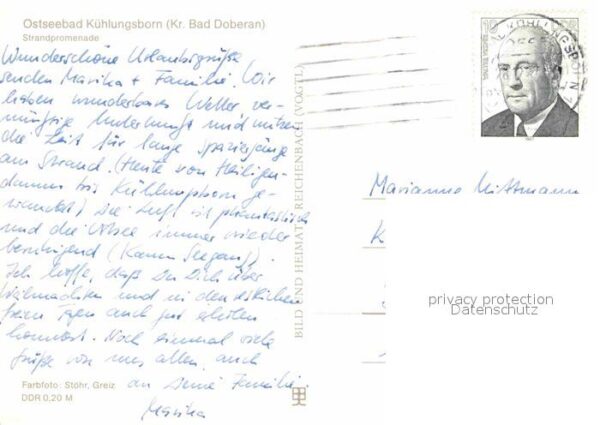 Ostseebad Kühlungsborn (Kr. Bad Doberan)
Strandpromenade
Wunderschöne Urlaubsgrüße
senden Marika + Familie. Wir
haben wunderbares Wetter, ver-
nünftige Unterkunft und nutzen
die Zeit für lange Spaziergänge
am Strand. (Heute von Heiligen-
damm bis Kühlungsborn ge-
wandert) Die Luft ist phantastisch
und die Ostsee immer wieder
beruhigend (Kaum Seegang).
Ich hoffe, daß Du Dich über
Weihnachten und in den
freien Tagen auch gut erholen
konntest. Noch einmal viele
Grüße von uns allen, auch
an Deine Familie.
Marika
Farbfoto: Stöhr, Greiz
DDR 0,20 M
BILD UND HEIMAT REICHENBACH (VOGTL)
KÜHLUNGSBORN
Marianne Mittmann
K
privacy protection
Datenschutz